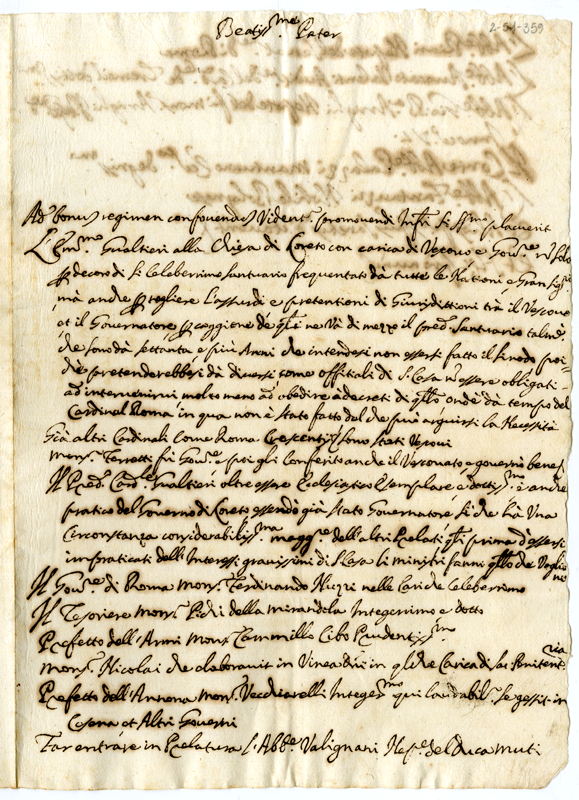 2-54-359
Beatiss.me Pater
Ad bonus regimen confovendas Vident.r promovendi Infri si SS.mo placuerit
L'Em.mo Gualtieri alla Chiesa di Loreto con carica di Vescovo e Gov.re n solo
p decoro di sì celeberrimo santuario frequentato dà tutte le Nationi e Gran Sig.ri
mà anche p togliere l'assurdi e pretentioni di Giurisdittioni trà il Vescovo
et il Governatore p caggione de q.li ne và di mezzo il pred.o Santuario talm.e
che sono dà settanta e più Anni che intendesi non essersi fatto il sinodo poi-
chè pretenderebbesi dà diversi come offitiali di S. Casa n essere obligati
ad intervenirvi molto meno ad obedire a decreti di q.llo onde dà tempo del
Cardinal Roma in qua non è stato fatto dal che può arguirsi la Necessità
Già altri Cardinali come Roma Crescentij sono stati Vescovi
Mons.r Ferretti fù Gov.re e poi gli conferito anche il Vescovato e governò bene
Il Pred.o Card.le Gualtieri oltre essere Eclesiastico Esemplare e dottiss.mo è anche
pratico del Governo di Loreto essendo già stato Governatore si che hà Una
Circonstanza considerabiliss.ma magg.re dell'altri Prelati q.li prima d'essersi
impraticati dell'Interessi gravissimi di S. Casa li ministri fanno q.llo che Voglio
no
Il Gov.re di Roma Mons.r Ferdinando Nuzzi nelle cariche celeberrimo
Il Tesoriere Mons.r Pichi della mirandola Integerrimo e dotto
Prefetto dell'Armi Mons.r Cammillo Cibo Prudentiss.m
Mons.r Nicolai che elaboravit in Vinea Dni in q.lche Carica di Sac Penitent.ria
Prefetto dell'Annona Mons.r Vecchiarelli Integer.mo qui laudabil.r se gessit in
Cesena et Altri Governi
Far entrare in Prelatura l'Abb.e Valignani Nep.e del Duca Muti